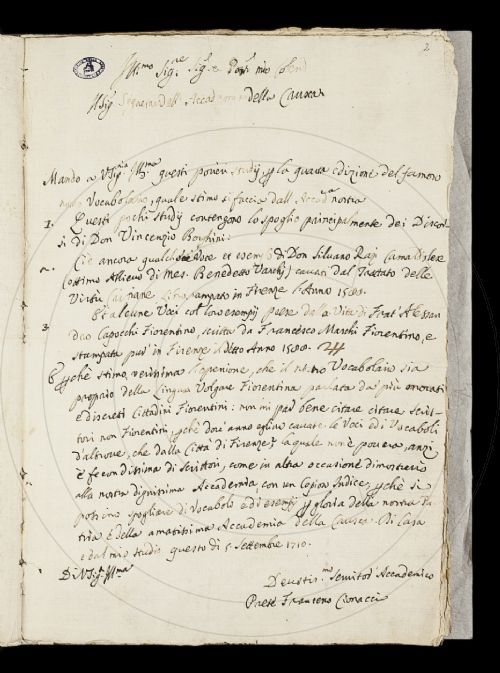 2
Ill.mo Sig.re Sig.re Pron mio Colend
Il Sig Segretario dell Accademia della Crusca
Mando a V Sig.ria Ill.ma questi poveri studij, p la quarta edizione del famoso
nostro Vocabolario, quale stimo si faccia dall Accad.a nostra
1. Questi pochi studij contengono lo spoglio principalmente dei Discor-
si di Don Vincenzio Borghini:
2. C'è ancora qualche Voce et esempj di Don Silvano Razzi Camaldolese
(ottimo Allievo di Mes. Benedetto Varchij) cavati dal Trattato delle
Virtù stampato in Firenze l'Anno 1588.
3 Ci è alcune Voci col loro esempij prese dalla Vita di Frat' Alessan
dro Capocchi Fiorentino, scritta da Francesco Marchi Fiorentino, e
stampata pur' in Firenze il detto Anno 1588.
E p chè stimo verissima l'openione, che il Vocabolario sia
proprio della Lingua Volgare Fiorentina parlata da' più onorati
e discreti Cittadini Fiorentini: non mi par' bene citare citare scrit-
tori non Fiorentini, p chè dove anno eglino cavate le Voci ed i Vocaboli
d'altrove, che dalla Città di Firenze? la quale non è povera, anzi
è fecondissima di scrittori, come in altra occasione dimostrerò
alla nostra dignissima Accademia con un Copioso Indice, p chè si
potrino spogliare di Vocaboli e di esempj p gloria della nostra Pa-
tria è della amatissima Accademia della Crusca. Di Casa
e dal mio studio questo di 5 Settembre 1710.
Di V Sig.a Ill.ma
Deuotis.mo Servitor Accademico
Prete Francesco Cionacci